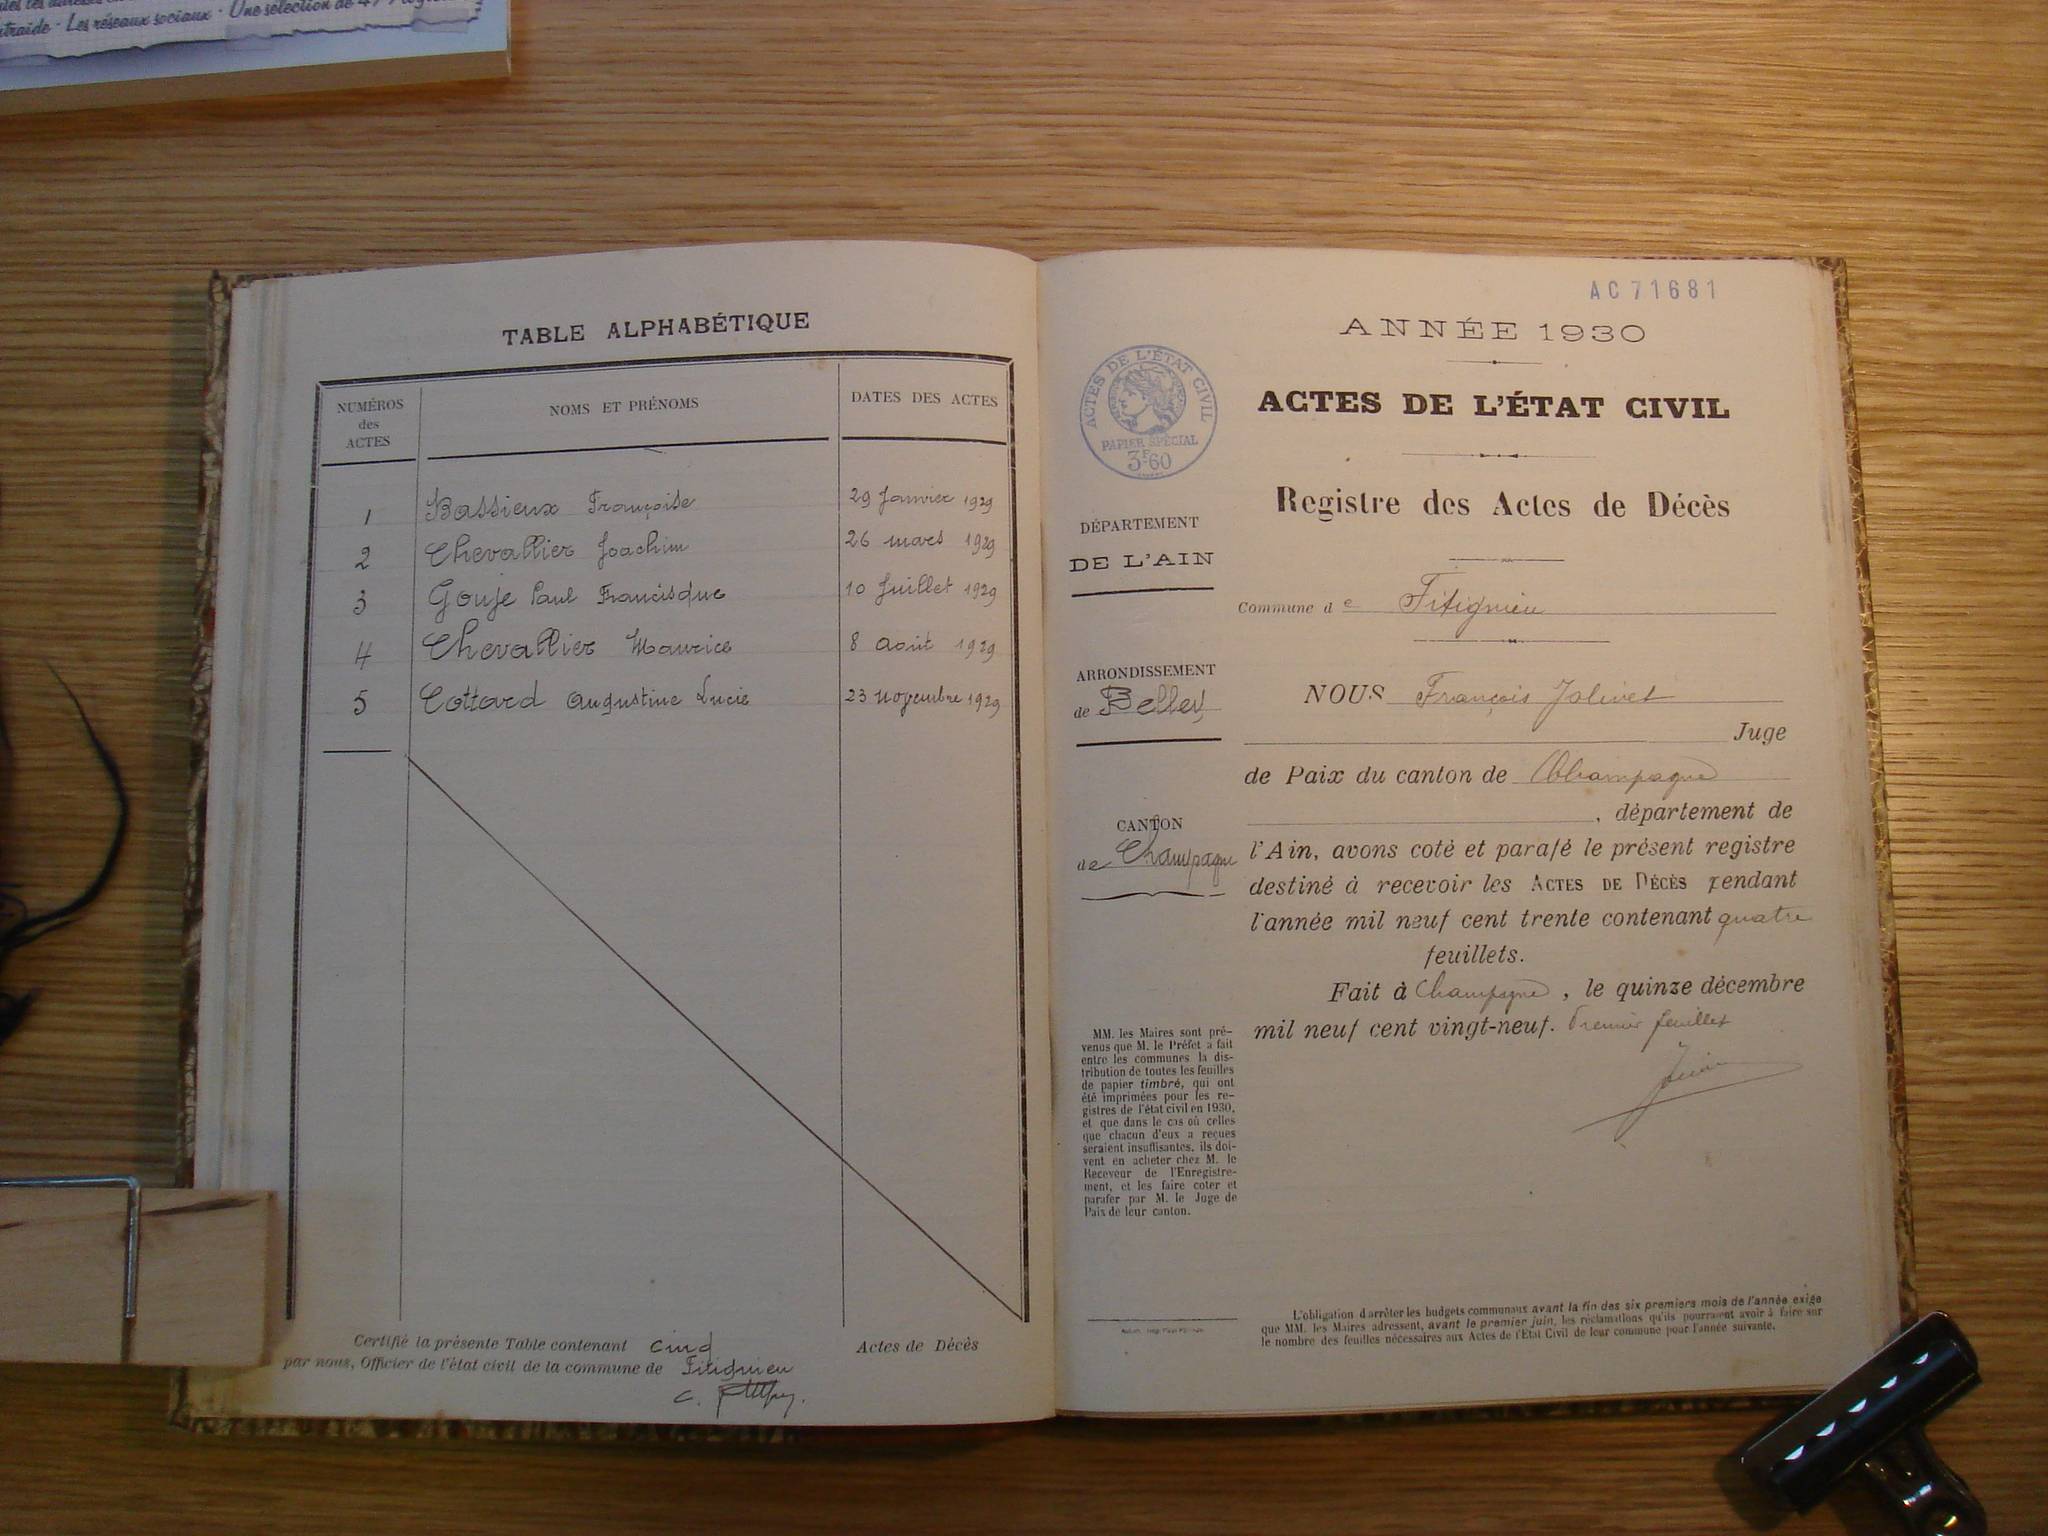 Les réseaux sociaux · Une sélection de
TABLE ALPHABÉTIQUE
NUMÉROS
des
ACTES
NOMS ET PRÉNOMS
DATES DES ACTES
1 Bassieux Françoise 29 Janvier 1929
2 Chevallier Joachim 26 mars 1929
3 Gouje Paul Francisque 10 Juillet 1929
4 Chevallier Maurice 8 Août 1929
5 Cottard Augustine Lucie 23 novembre 1929
Certifié la présente Table contenant cinq Actes de Décès
par nous, Officier de l'état civil de la commune de Fitignieu
AC 71681
ANNÉE 1930
ACTES DE L'ÉTAT CIVIL
PAPIER SPÉCIAL
3F60
ACTES DE L'ÉTAT CIVIL
Registre des Actes de Décès
DÉPARTEMENT
DE L'AIN
Commune de Fitignieu
ARRONDISSEMENT
de Belley
NOUS François Jolivet
Juge
de Paix du canton de Champagne
, département de
CANTON
de Champagne
l'Ain, avons coté et parafé le présent registre
destiné à recevoir les ACTES DE DÉCÈS pendant
l'année mil neuf cent trente contenant quatre
feuillets.
Fait à Champagne, le quinze décembre
mil neuf cent vingt-neuf. Premier feuillet
MM. les Maires sont pré-
venus que M. le Préfet a fait
entre les communes la dis-
tribution de toutes les feuilles
de papier timbré, qui ont
été imprimées pour les re-
gistres de l'état civil en 1930,
et que dans le cas où celles
que chacun d'eux a reçues
seraient insuffisantes, ils doi-
vent en acheter chez M. le
Receveur de l'Enregistre-
ment, et les faire coter et
parafer par M. le Juge de
Paix de leur canton.
L'obligation d'arrêter les budgets communaux avant la fin des six premiers mois de l'année exige
que MM. les Maires adressent, avant le premier juin, les réclamations qu'ils pourraient avoir à faire sur
le nombre des feuilles nécessaires aux Actes de l'Etat Civil de leur commune pour l'année suivante.